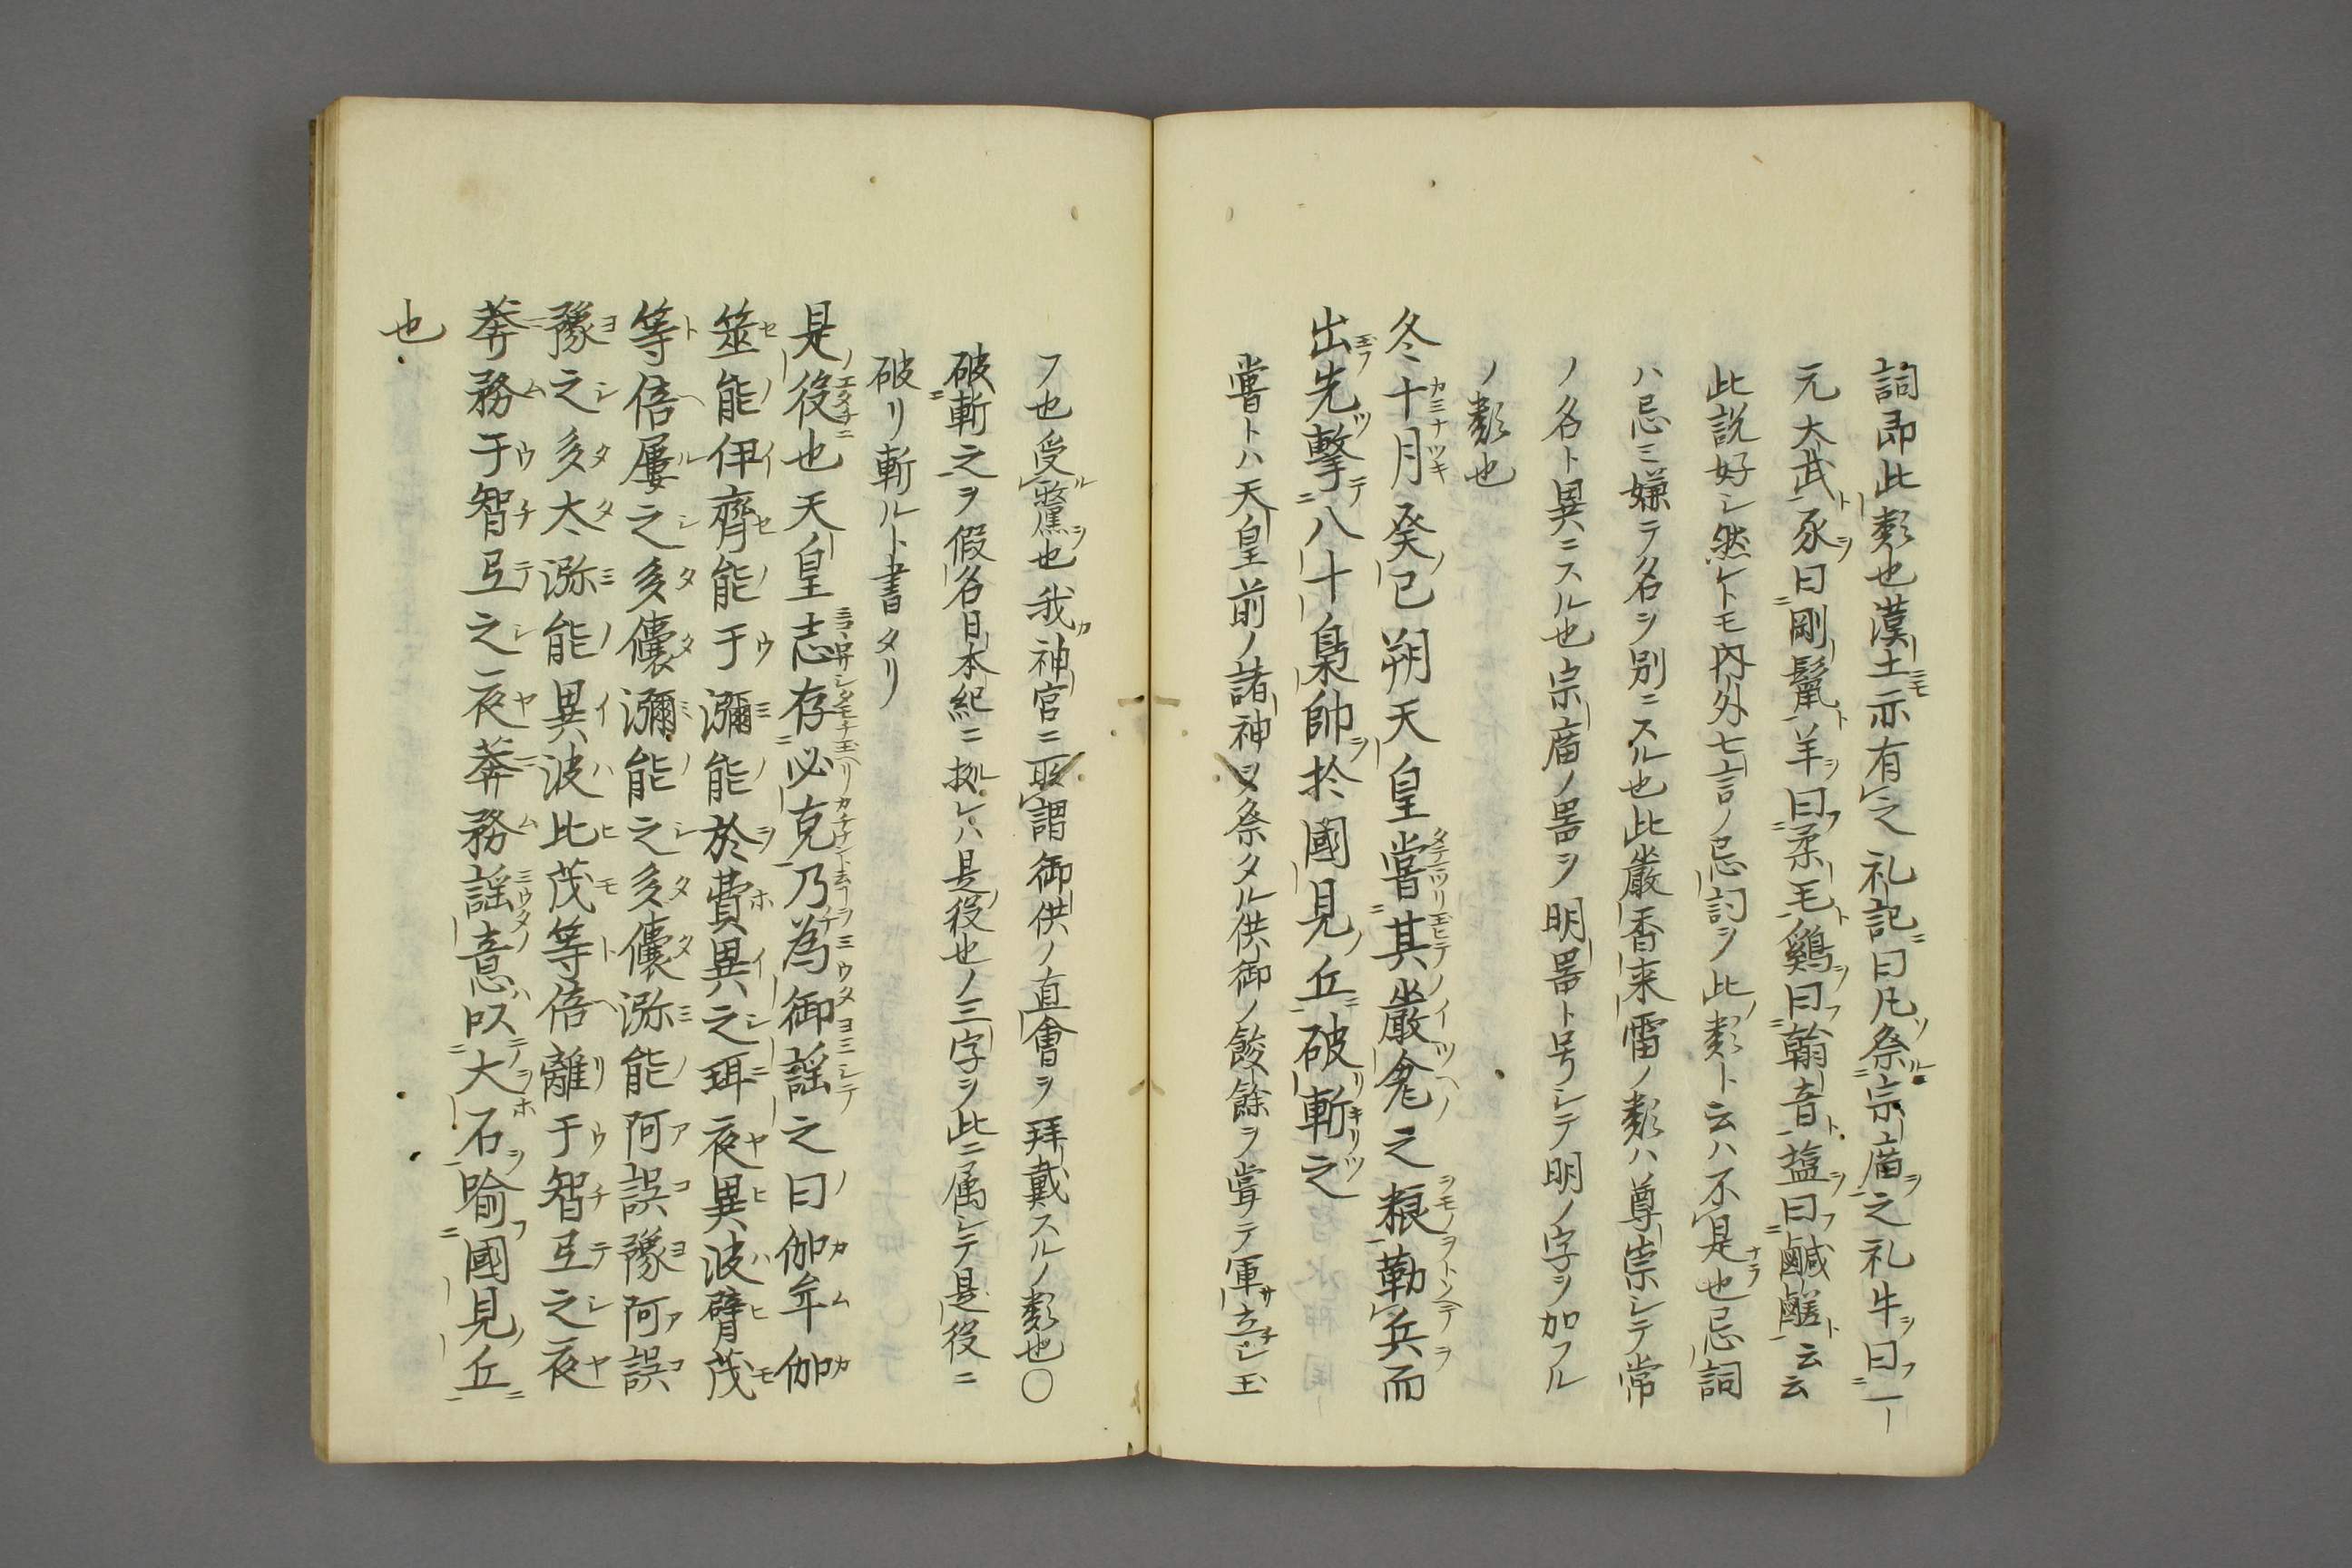 詞即此類也漢土ニモ亦有之礼記ニ曰凡祭ルソ宗廟ヲ之礼牛ヲ曰フ一
元大武ト豕ヲ曰剛鬣ト羊ヲ曰フ柔毛ト鷄ヲ曰フ翰音ト塩ヲ曰フ鹹鹺ト云云
此説好シ然レトモ内外七言ノ忌詞ヲ此ノ類ト云ハ不是ナラ也忌詞
ハ忌ミ嫌テ名ヲ別ニスル也此嚴香来雷ノ類ハ尊崇シテ常
ノ名ト異ニスル也宗廟ノ噐ヲ明噐ト号シテ明ノ字ヲ加フル
ノ類也
冬十月癸巳朔天皇嘗其嚴瓮之粮勒兵而
出先擊八十梟帥於國見丘破斬之
嘗トハ天皇前ノ諸神ヲ祭タル供御ノ餕餘ヲ嘗テ軍立シ玉
フ也受ル釐ヲ也我カ神宮ニ所謂御供ノ直會ヲ拜戴スルノ類也〇
破斬之ヲ假名日本紀ニ拠レハ是役也ノ三字ヲ此ニ属シテ是ノ役ニ
破リ斬ルト書タリ
是役也天皇志存必克乃為御謡之曰伽牟伽
筮能伊齊能于瀰能於費異之珥夜異波臂茂
等倍屢之多儾瀰能之多儾弥能阿誤豫阿誤
豫之多太弥能異波比茂等倍離于智弖之夜
莾務于智弖之夜莾務謡意以大石喻國見丘
也